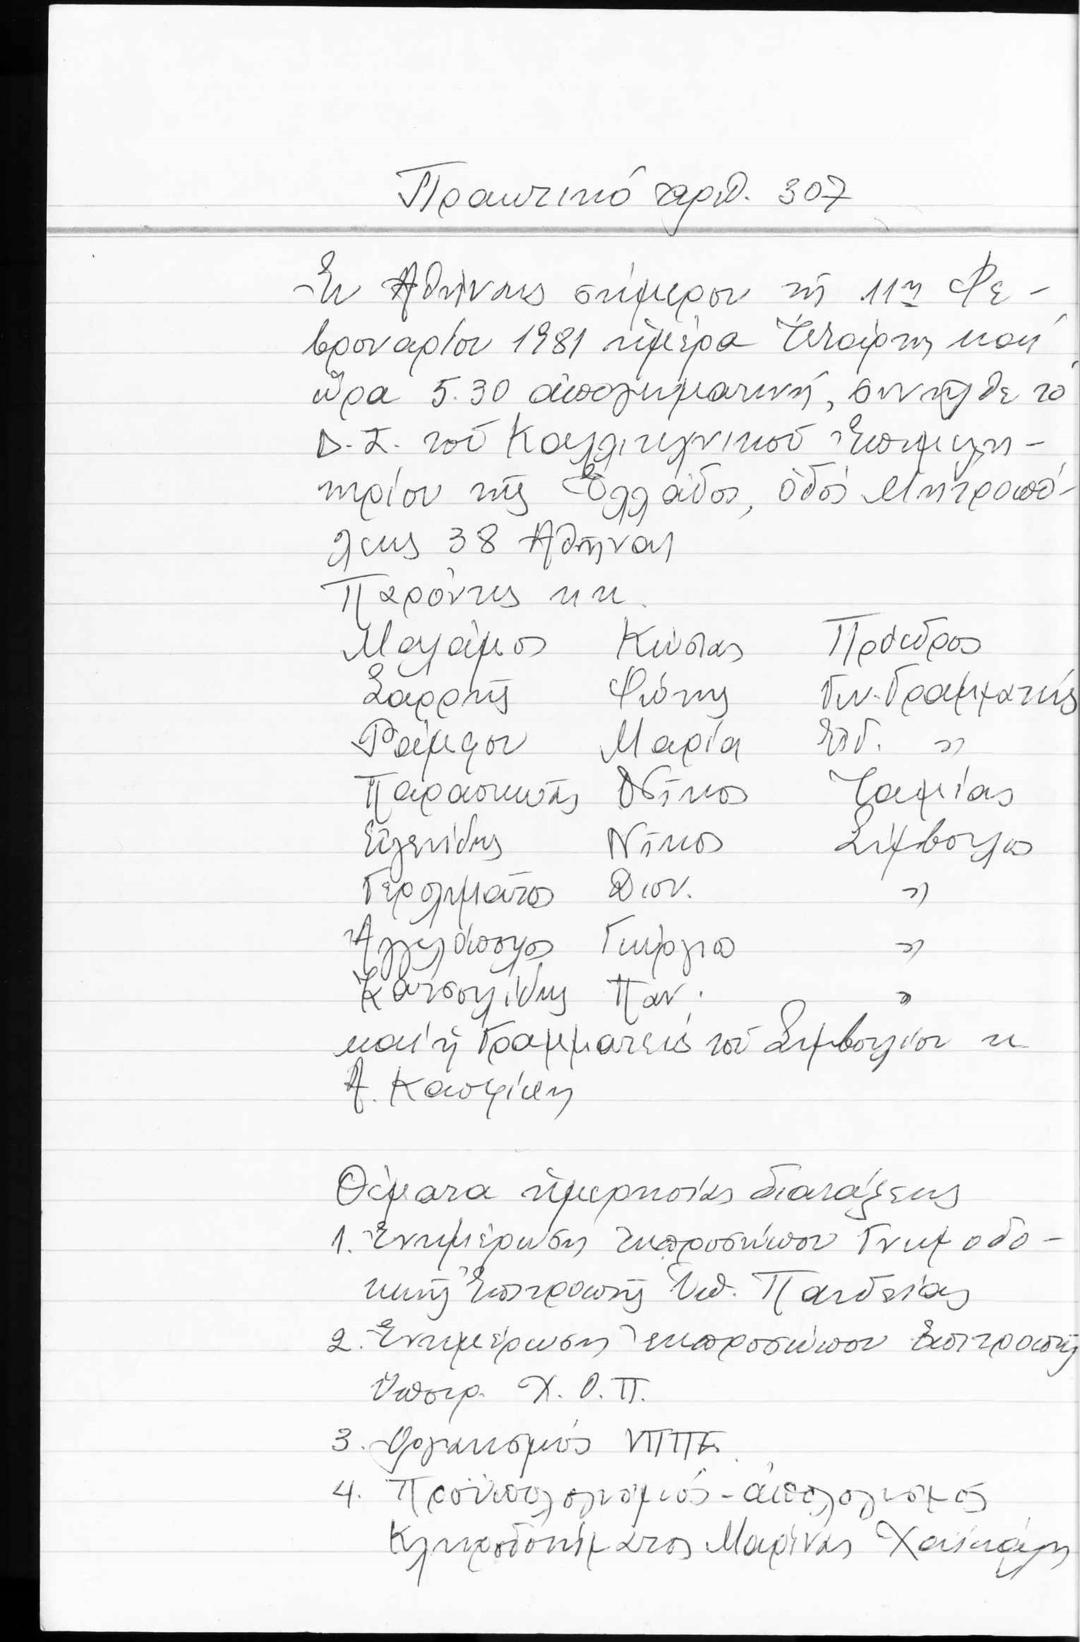 Πρακτικό αριθ. 307
Ἐν Ἀθήναις σήμερον τῇ 11η Φε-
βρουαρίου 1981 ἡμέρα Τετάρτη καί
ὥρα 5.30 ἀπογευματινή, συνῆλθε τό
Δ.Σ. τοῦ Καλλιτεχνικοῦ Ἐπιμελη-
τηρίου τῆς Ἑλλάδος, ὁδός Μητροπό-
λεως 38 Ἀθῆναι
Παρόντες κ.κ.
Μαλάμος Κώστας Πρόεδρος
Σαρρής Φώτης Γεν. Γραμματεύς
Ράμφου Μαρία Εἰδ. "
Παρασκευᾶς Νῖκος Ταμίας
Εὐγενίδης Νῖκος Σύμβουλος
Γερολυματος Διον. "
Ἀγγελόπουλος Γεώργιος "
Κατσουλίδης Παν. "
καί ἡ Γραμματεύς τοῦ Συμβουλίου κ
Α.
Θέματα ἡμερησίας διατάξεως
1. Ἐνημέρωση ἐκπροσώπου Γνωμοδο-
τικῆς Ἐπιτροπῆς Ὑπ. Παιδείας
2. Ἐνημέρωση ἐκπροσώπου Ἐπιτροπῆς
Χ.Ο.Π.
3. Ὀργανισμός ΝΠΠΕ
4. Προϋπολογισμός - ἀπολογισμός
Κληροδοτήματος Μαρίνας